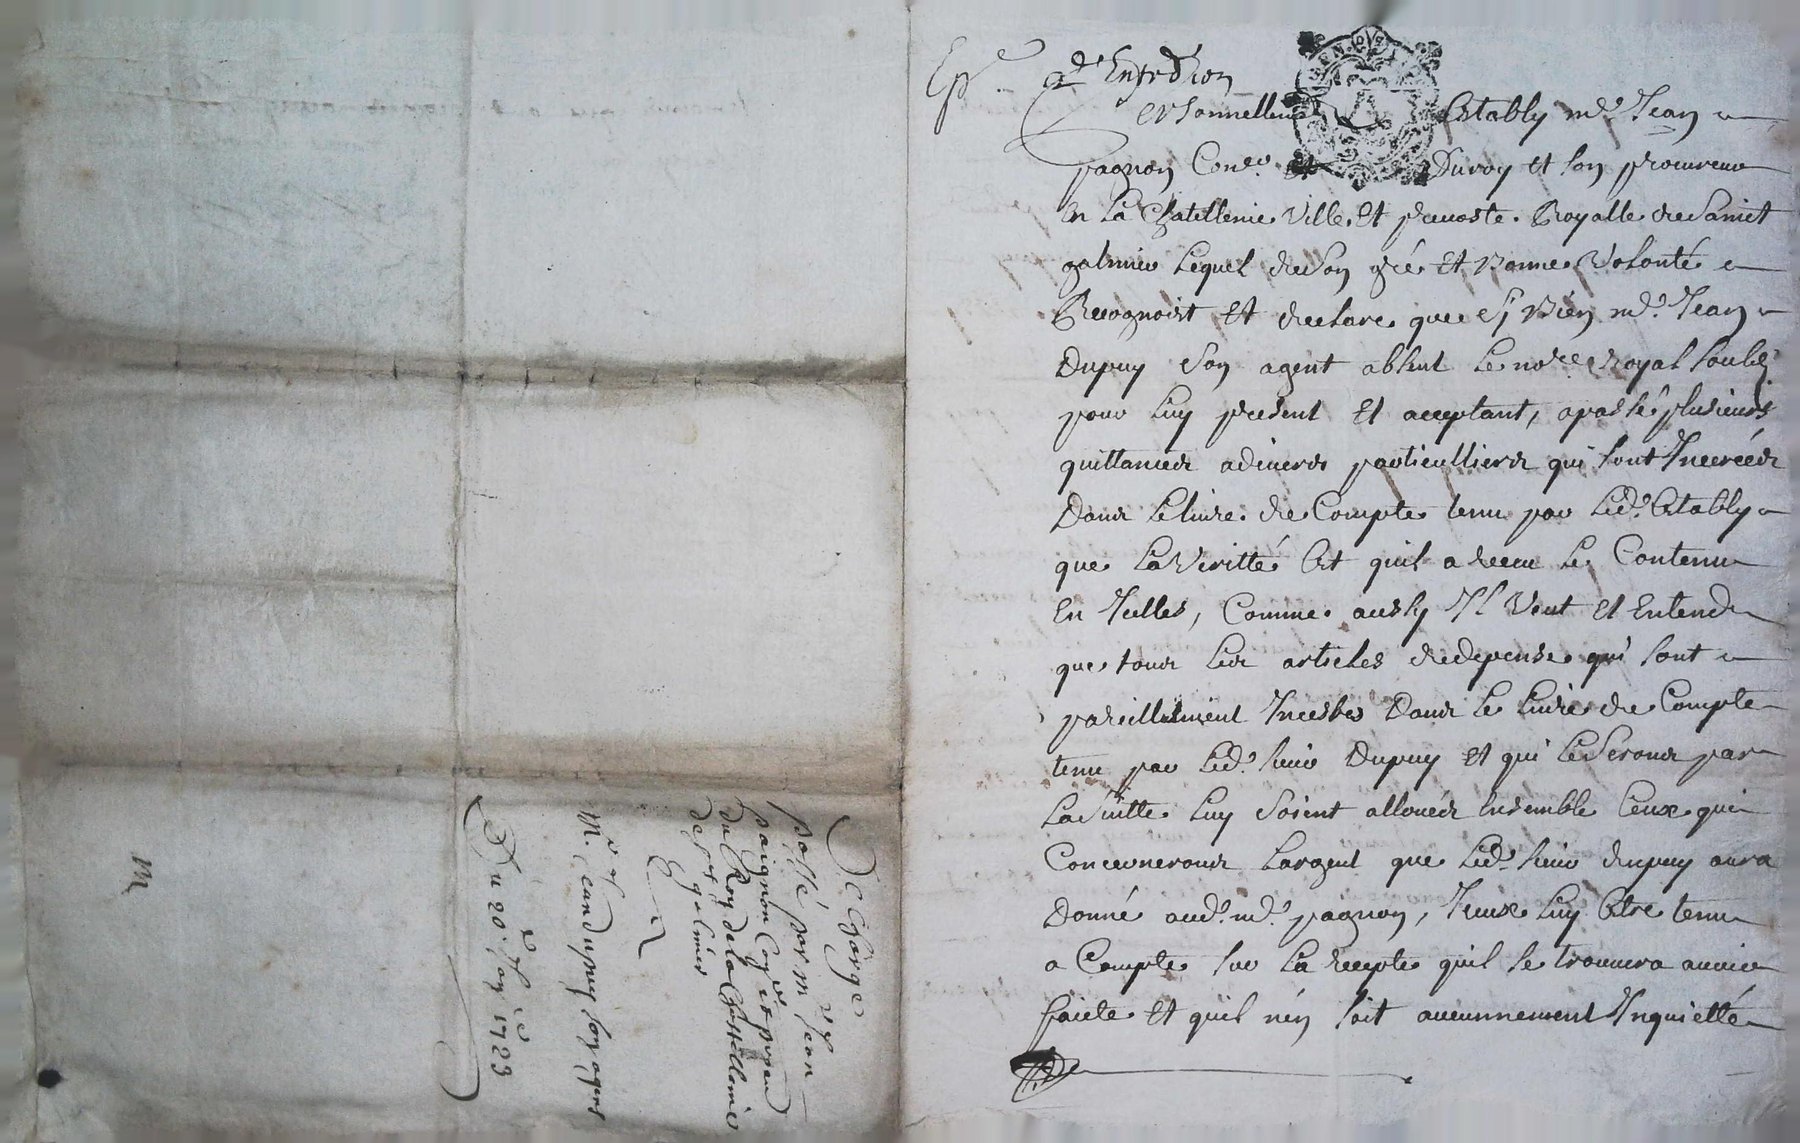 Decharge
passé par m.re Jean
paignon Con.er et procureur
du Roy de la Chatellenie
de s.t galmier
a
M.re Jean dupuy son agent
Du 20.e Juin 1723
M
Exp.e
Estably m.e Jean
pagnon Con.er Du roy et son procureur
En La Chatellenie Ville Et prevosté Royalle de Sainct
galmier Lequel de son gré Et bonne Volonté
Recognoist Et declare que sy bien m.e Jean
Dupuy son agent absent Le no.re royal soub.é
pour Luy present Et acceptant, a passé plusieurs
quittances a divers particulliers qui sont Incerées
Dans Le livre de Compte tenu par Led. Estably
que La Veritté Est quil a receu Le Contenu
En Icelles, Comme aussy Il Veut Et Entend
que tous Les articles de depense qui sont
pareillement Incerés Dans Le Livre de Compte
tenu par Led. sieur Dupuy Et qui Le seront par
La suitte Luy soient alloués Ensemble Ceux qui
Concerneront Largent que Led. sieur dupuy aura
Donné aud. m.e pagnon, Iceux Luy Estre tenu
a Compte sur La recepte quil se trouvera avoir
faicte Et quil n'en soit aucunnement Inquietté